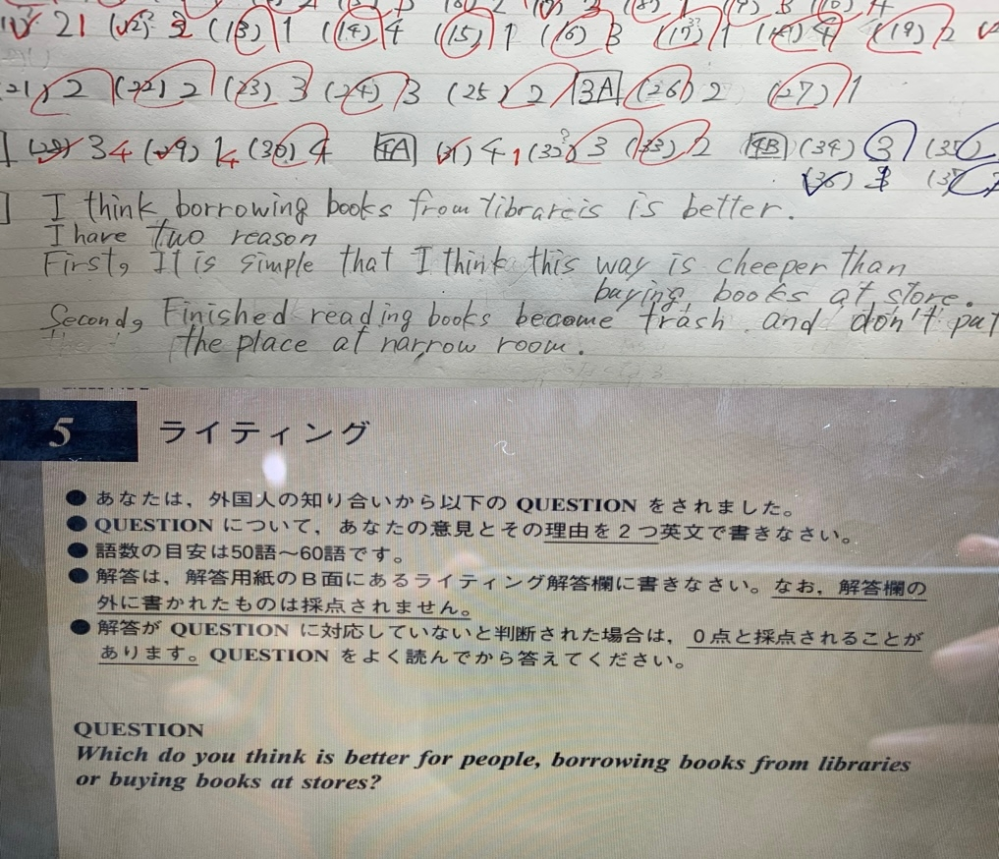 21 (12) 2 (13) 1 (14) 4 (15) 1 (16) 3 (17) 1 (18) 4 (19) 2
21) 2 (22) 2 (23) 3 (24) 3 (25) 2 3A (26) 2 (27) 1
(28) 3 4 (29) 1 4 (30) 4 4A (31) 4 1 (32) 3 (33) 2 4B (34) 3 (35)
(36) (37)
I think borrowing books from librareis is better.
I have two reason
First, It is simple that I think this way is cheeper than
buying books at store.
Second, Finished reading books become trash and don't put
the place at narrow room.
5 ライティング
● あなたは、外国人の知り合いから以下の QUESTION をされました。
● QUESTION について、あなたの意見とその理由を2つ英文で書きなさい。
● 語数の目安は50語~60語です。
● 解答は、解答用紙のB面にあるライティング解答欄に書きなさい。なお、解答欄の
外に書かれたものは採点されません。
● 解答が QUESTION に対応していないと判断された場合は、0点と採点されることが
あります。QUESTION をよく読んでから答えてください。
QUESTION
Which do you think is better for people, borrowing books from libraries
or buying books at stores?